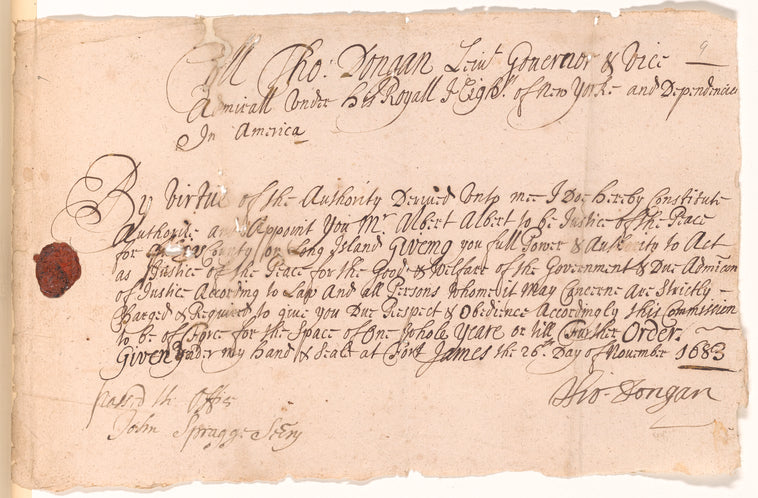 Coll Tho: Dongan Leiut Governor & Vice 9
Admirall Under His Royall Highs of New Yorke and Dependencies
In America
By Virtue of the Authority Derived Unto mee I Doe hereby Constitute
Authorise and Appoint You Mr Albert Albert to be Justice of the Peace
for County on Long Island Giveing you full Power & Authority to Act
as Justice of the Peace for the Good & Welfare of the Government & Due Admicon
of Justice According to Law And all Persons whome it may Concerne Are Strictly
Charged & Required to give You Due Respect & Obedience Accordingly this Commission
to be of Force for the Space of One whole Yeare or till Further Order.
Given Under my Hand & Seale at Fort James the 26th Day of November 1683
Tho: Dongan
passed the Office
John Spragge Secry